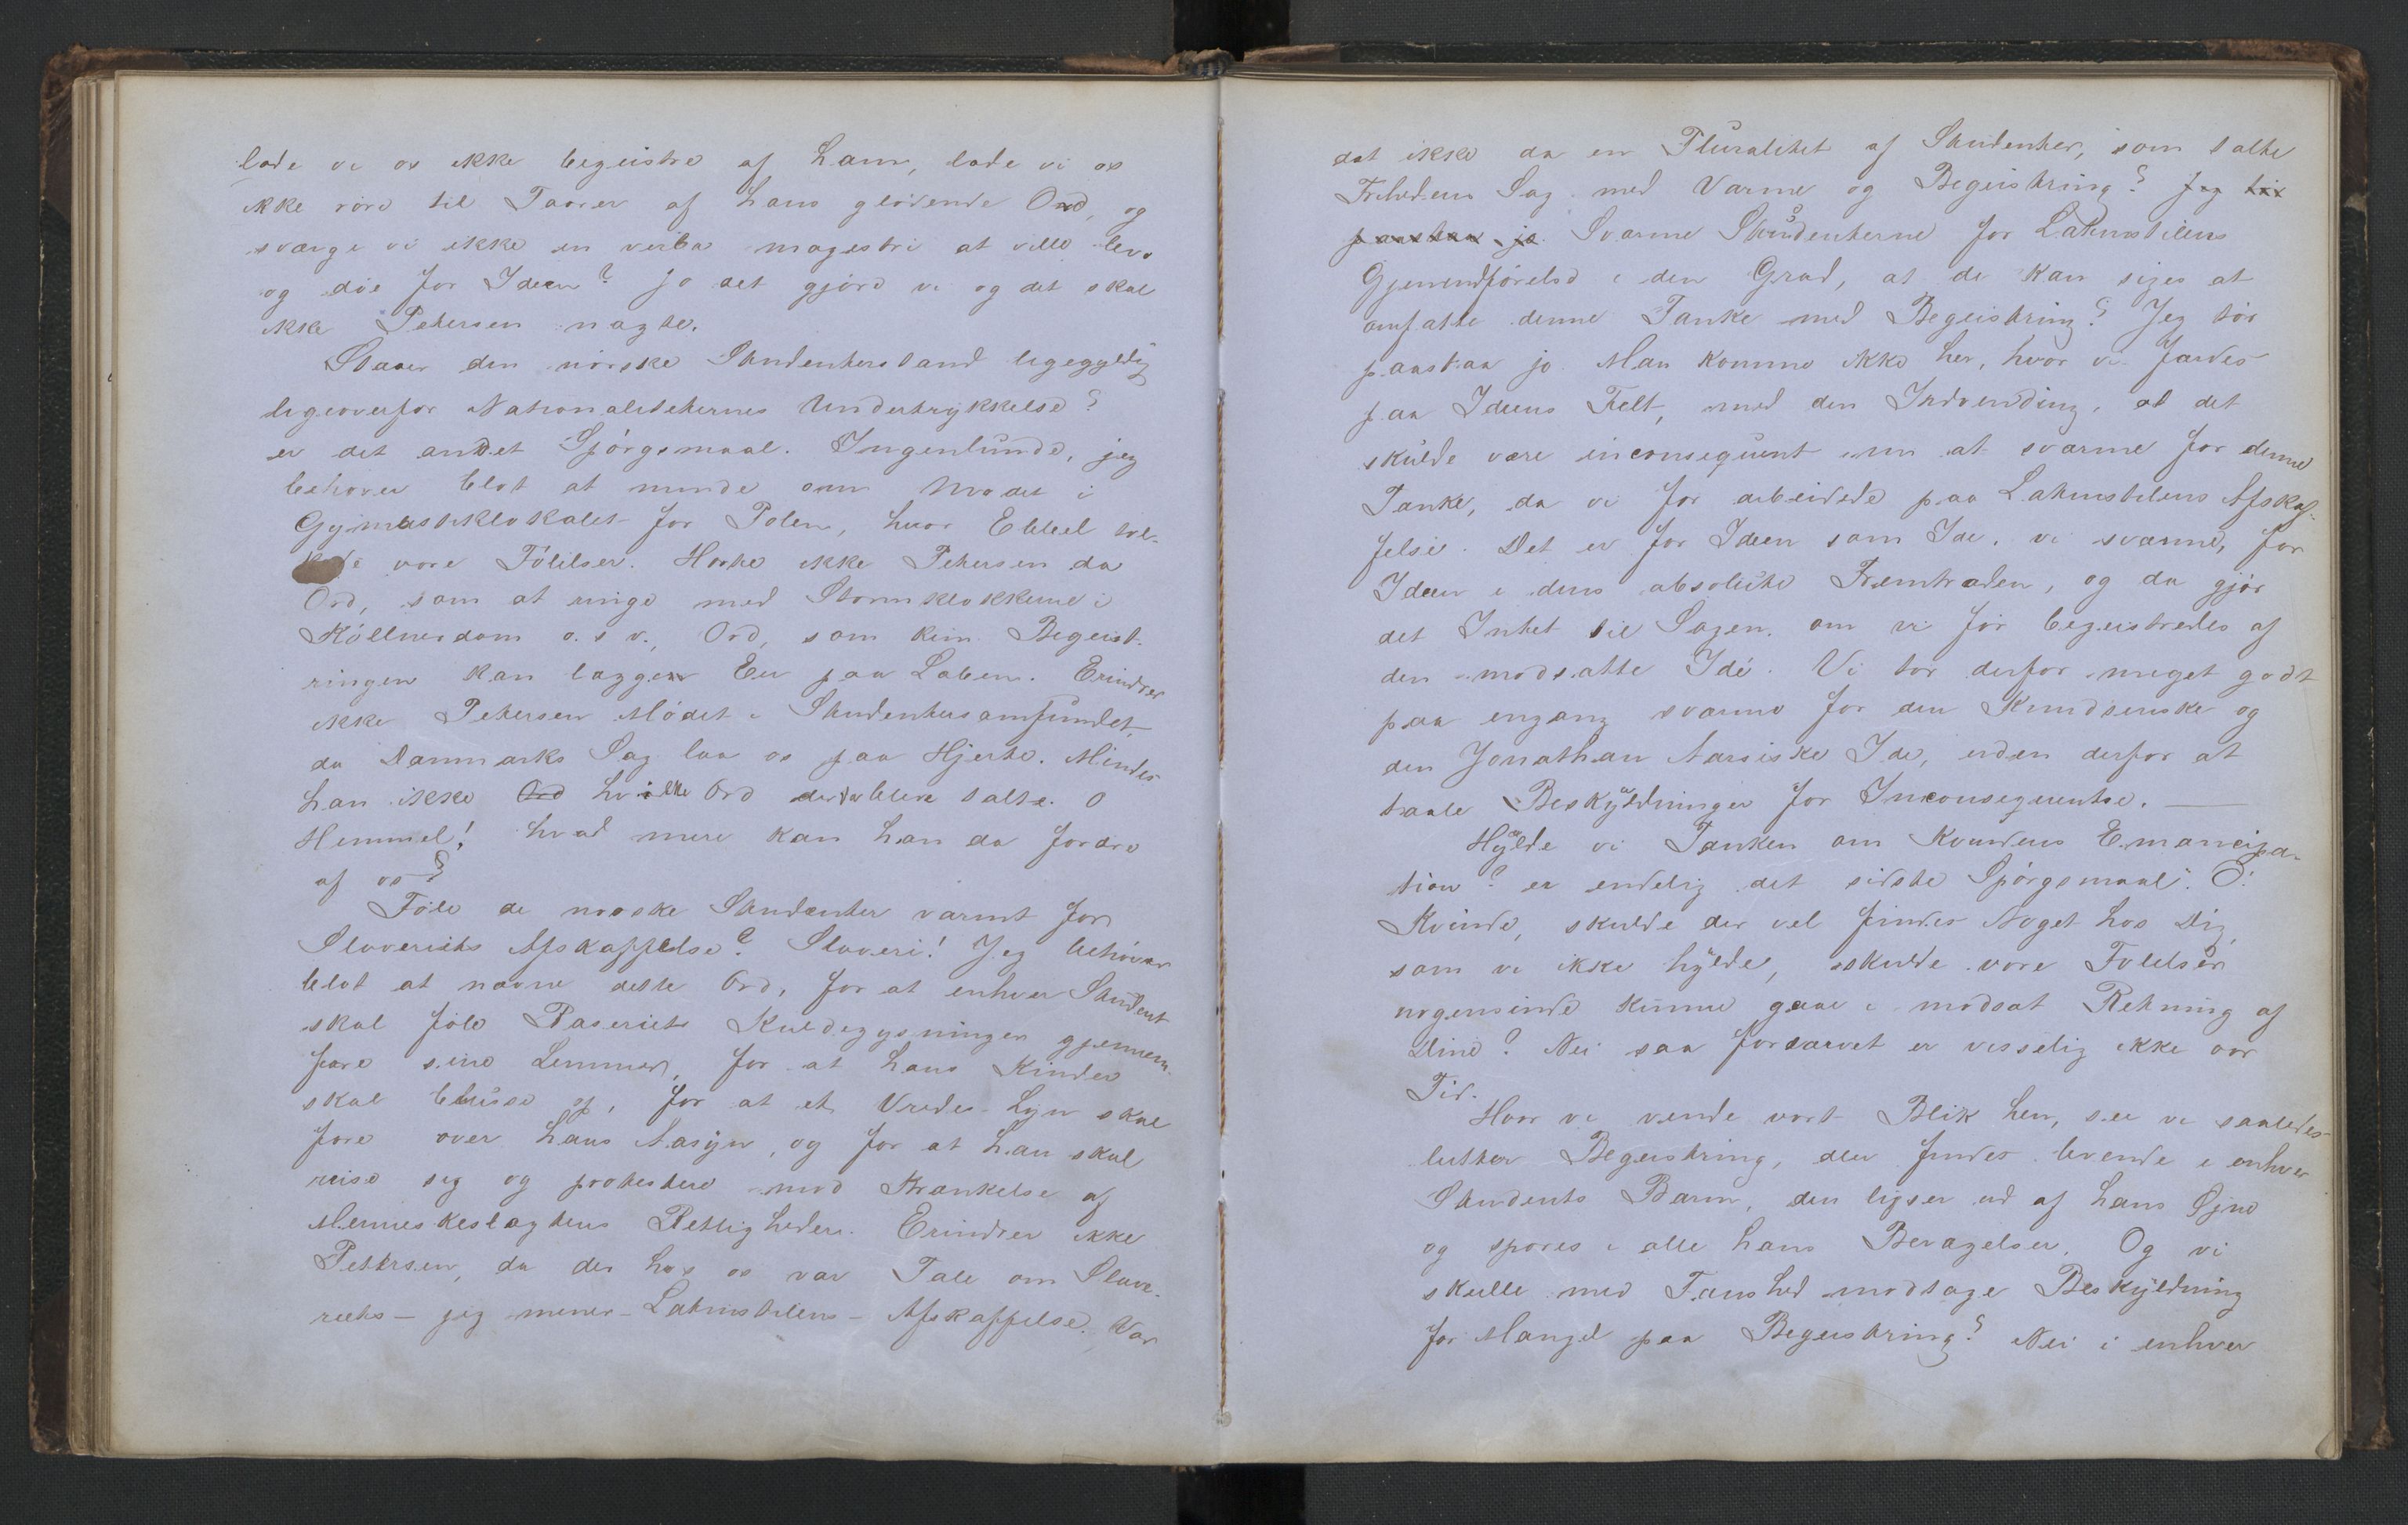 lade vi os ikke begeistre af ham, lade vi os
ikke röre til Taarer af hans glödende Ord, og
sværge vi ikke in verba magistri at ville leve
og döe for Ideen? Jo det gjöre vi og det skal
ikke Petersen nægte.
Staaer den norske Studenterstand ligegyldig
ligeoverfor Nationaliteternes Undertrykkelse?
er det andet Spörgsmaal. Ingenlunde, jeg
behøver blot at minde om Mødet i
Gymnastiklokalet for Polen, hvor Ebbell tol-
kede vore Fölelser. Hørte ikke Petersen da
Ord, som at ringe med Stormklokkerne i
Köllnerdom o. s v., Ord, som kun Begeist-
ringen kan lægge Een paa Læben. Erindrer
ikke Petersen Mödet i Studentersamfundet,
da Danmarks Sag laa os paa Hjerte. Mindes
han ikke Ord hvilke Ord der bleve talte. O
Himmel! hvad mere kan han da fordre
af os?
Föle de norske Studenter varmt for
Slaveriets Afskaffelse? Slaveri! Jeg behöver
blot at nævne dette Ord, for at enhver Student
skal föle Raseriets Kuldegysninger gjennem-
fare sine Lemmer, for at hans Kinder
skal blusse op, for at et Vredes-Lyn skal
fare over hans Aasyn, og for at han skal
reise seg og protestere mod Krænkelse af
Menneskeslægtens Rettigheder. Erindrer ikke
Petersen, da der hos os var Tale om Slave-
riets – jeg mener – Latinstilens – Afskaffelse. Var
det ikke da en Pluralitet af Studenter, som talte
Frihedens Sag med Varme og Begeistring? Jeg tör
paastaa jo. Sværme Studenterne for Latinstilens
Gjenindförelse i den Grad, at de kan siges at
omfatte denne Tanke med Begeistring? Jeg tör
paastaa jo. Man komme ikke her, hvor vi færdes
paa Ideens Felt, med den Indvending, at det
skulde være inconsequent nu at sværme for denne
Tanke, da vi för arbeidede paa Latinstilens Afskaf-
felse. Det er for Ideen som Ide, vi sværme, for
Ideen i dens absolute Fremtræden, og da gjör
det Intet til Sagen, om vi för begeistredes af
den modsatte Idé. Vi tör derfor meget godt
paa engang sværme for den Knudsenske og
den Jonathan Aarsiske Ide, uden derfor at
taale Beskyldninger for Inconsequentse. —
Hylde vi Tanken om Kvindens Emancipa-
tion? er endelig det sidste Spörgsmaal. O!
Kvinde, skulde der vel findes Noget hos Dig,
som vi ikke hylde, skulde vore Følelser
nogensinde kunne gaae i modsat Retning af
Dine? Nei saa fordærvet er visselig ikke vor
Tid.
Hvor vi vende vort Blik hen, see vi saaledes
lutter Begeistring, den findes levende i enhver
Students Barm, den lyser ud af hans Øjne
og spores i alle hans Bevægelser. Og vi
skulle med Taushed modtage Beskyldning
for Mangel paa Begeistring? Nei i enhver